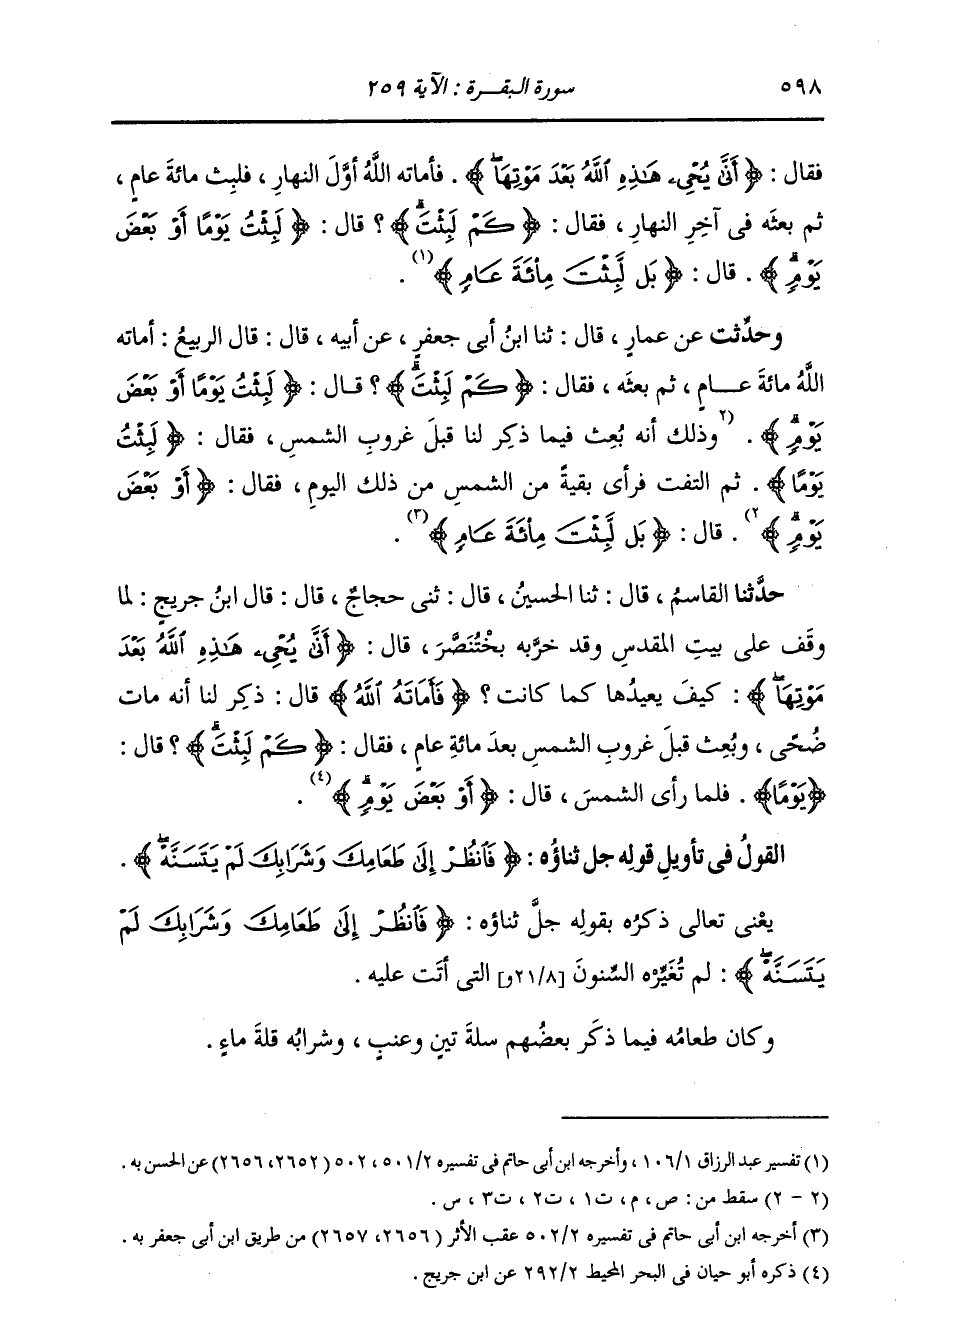 ٥٩٨ سورة البقـرة : الآية ٢٥٩
فقال : ﴿ أَنَّى يُحْىِۦ هَـٰذِهِ ٱللَّهُ بَعْدَ مَوْتِهَاۖ ﴾ . فأماته اللَّهُ أوَّلَ النهارِ ، فلبِث مائةَ عامٍ ،
ثم بعثَه فى آخِرِ النهارِ ، فقال : ﴿ كَمْ لَبِثْتَۖ ﴾ ؟ قال : ﴿ لَبِثْتُ يَوْمًا أَوْ بَعْضَ
يَوْمٍۖ ﴾ . قال : ﴿ بَل لَّبِثْتَ مِاْئَةَ عَامٍ ﴾(١) .
وحدِّثت عن عمارٍ ، قال : ثنا ابنُ أبى جعفرٍ ، عن أبيه ، قال : قال الربيعُ : أماته
اللَّهُ مائةَ عـامٍ ، ثم بعثَه ، فقال : ﴿ كَمْ لَبِثْتَۖ ﴾ ؟ قـال : ﴿ لَبِثْتُ يَوْمًا أَوْ بَعْضَ
يَوْمٍۖ ﴾ . (٢ وذلك أنه بُعِث فيما ذكِر لنا قبلَ غروبِ الشمسِ ، فقال : ﴿ لَبِثْتُ
يَوْمًا ﴾ . ثم التفت فرأى بقيةً من الشمسِ من ذلك اليومِ ، فقال : ﴿ أَوْ بَعْضَ
يَوْمٍۖ ﴾ ٢) . قال : ﴿ بَل لَّبِثْتَ مِاْئَةَ عَامٍ ﴾(٣) .
حدَّثنا القاسمُ ، قال : ثنا الحسينُ ، قال : ثنى حجاجٌ ، قال : قال ابنُ جريجٍ : لما
وقَف على بيتِ المقدسِ وقد خرَّبه بخْتُنَصَّرَ ، قال : ﴿ أَنَّى يُحْىِۦ هَـٰذِهِ ٱللَّهُ بَعْدَ
مَوْتِهَاۖ ﴾ : كيفَ يعيدُها كما كانت ؟ ﴿ فَأَمَاتَهُ ٱللَّهُ ﴾ قال : ذكِر لنا أنه مات
ضُحًى ، وبُعِث قبلَ غروبِ الشمسِ بعدَ مائةِ عامٍ ، فقال : ﴿ كَمْ لَبِثْتَۖ ﴾ ؟ قال :
﴿ يَوْمًا ﴾ . فلما رأى الشمسَ ، قال : ﴿ أَوْ بَعْضَ يَوْمٍۖ ﴾(٤) .
القولُ فى تأويلِ قولِه جل ثناؤُه : ﴿ فَٱنظُرْ إِلَىٰ طَعَامِكَ وَشَرَابِكَ لَمْ يَتَسَنَّهْۖ ﴾ .
يعْنى تعالى ذكرُه بقولِه جلَّ ثناؤه : ﴿ فَٱنظُرْ إِلَىٰ طَعَامِكَ وَشَرَابِكَ لَمْ
يَتَسَنَّهْۖ ﴾ : لم تُغَيِّرْه السِّنونَ [٢١/٨و] التى أتَت عليه .
وكان طعامُه فيما ذكَر بعضُهم سلةَ تينٍ وعنبٍ ، وشرابُه قلةَ ماءٍ .
(١) تفسير عبد الرزاق ١٠٦/١ ، وأخرجه ابن أبى حاتم فى تفسيره ٥٠١/٢ ، ٥٠٢ (٢٦٥٢، ٢٦٥٦) عن الحسن به .
(٢ - ٢) سقط من : ص ، م ، ت١ ، ت٢ ، ت٣ ، س .
(٣) أخرجه ابن أبى حاتم فى تفسيره ٥٠٢/٢ عقب الأثر (٢٦٥٦، ٢٦٥٧) من طريق ابن أبى جعفر به .
(٤) ذكره أبو حيان فى البحر المحيط ٢٩٢/٢ عن ابن جريج .